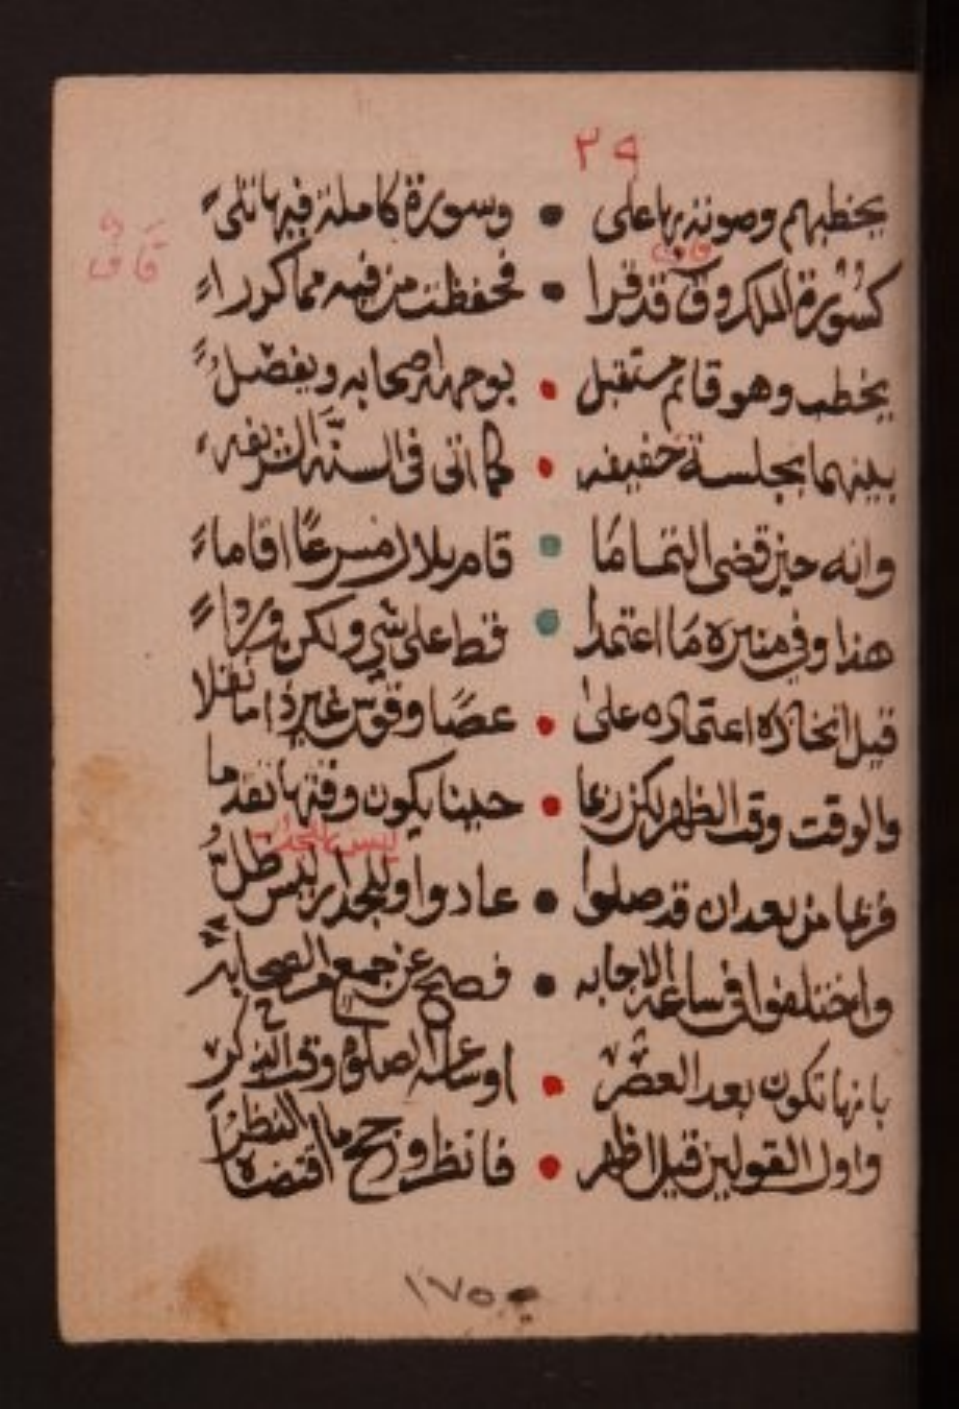 ٣٩
يخطبهم وصوته بها على • وسورة كاملة فيها تلى
كسورة الملك وق قد قرا • فحفظت من فيه مما كررا
قاف
يخطب وهو قائم مستقبل • بوجهه اصحابه ويفصل
بينهما بجلسة خفيفه • كما اتى في السنة الشريفه
وانه حين قضى التماما • قام بلال مسرعًا اقاما
هذا وفي منبره ما اعتمدا • قط على شي ولكن وردا
قيل اتخاذه اعتماده على • عصًا وقوس غير ذا ما نقلا
والوقت وقت الظهر لكن ربما • حينا يكون وقتها تقدما
فربما من بعد ان قد صلوا • عادوا وللجدار ليس ظل
واختلفوا في ساعة الاجابه • فصح عن جمع من الصحابه
بانها تكون بعد العصر • او ساعة الصلوة وقت الذكر
واول القولين قيل اظهر • فانظر ورجح ما اقتضاه النظر
١٧٥